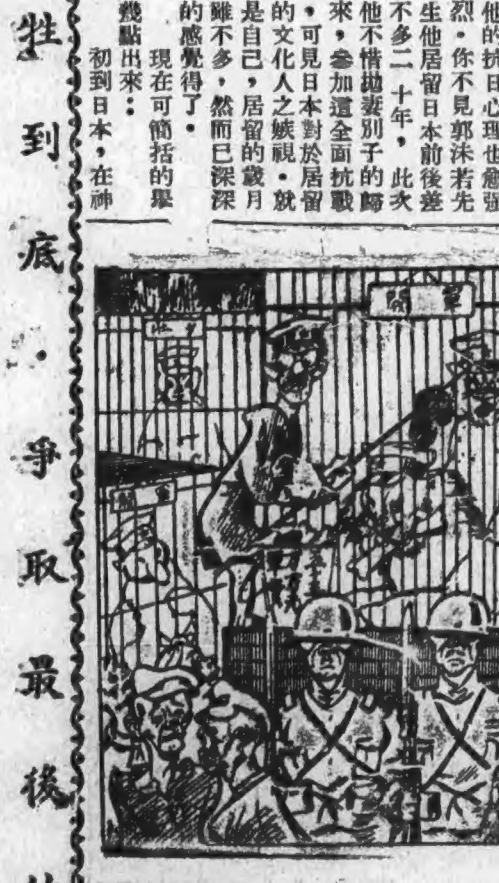 他的抗日心理也愈强
烈。你不見郭沫若先
生他居留日本前後差
不多二 十年，此次
他不惜拋妻別子的歸
來，參加這全面抗戰
，可見日本對於居留
的文化人之嫉視。就
是自己，居留的歲月
雖不多，然而已深深
的感覺得了。
現在可簡括的舉
幾點出來：
初到日本，在神
軍閥
軍閥
牲到底．爭取最後